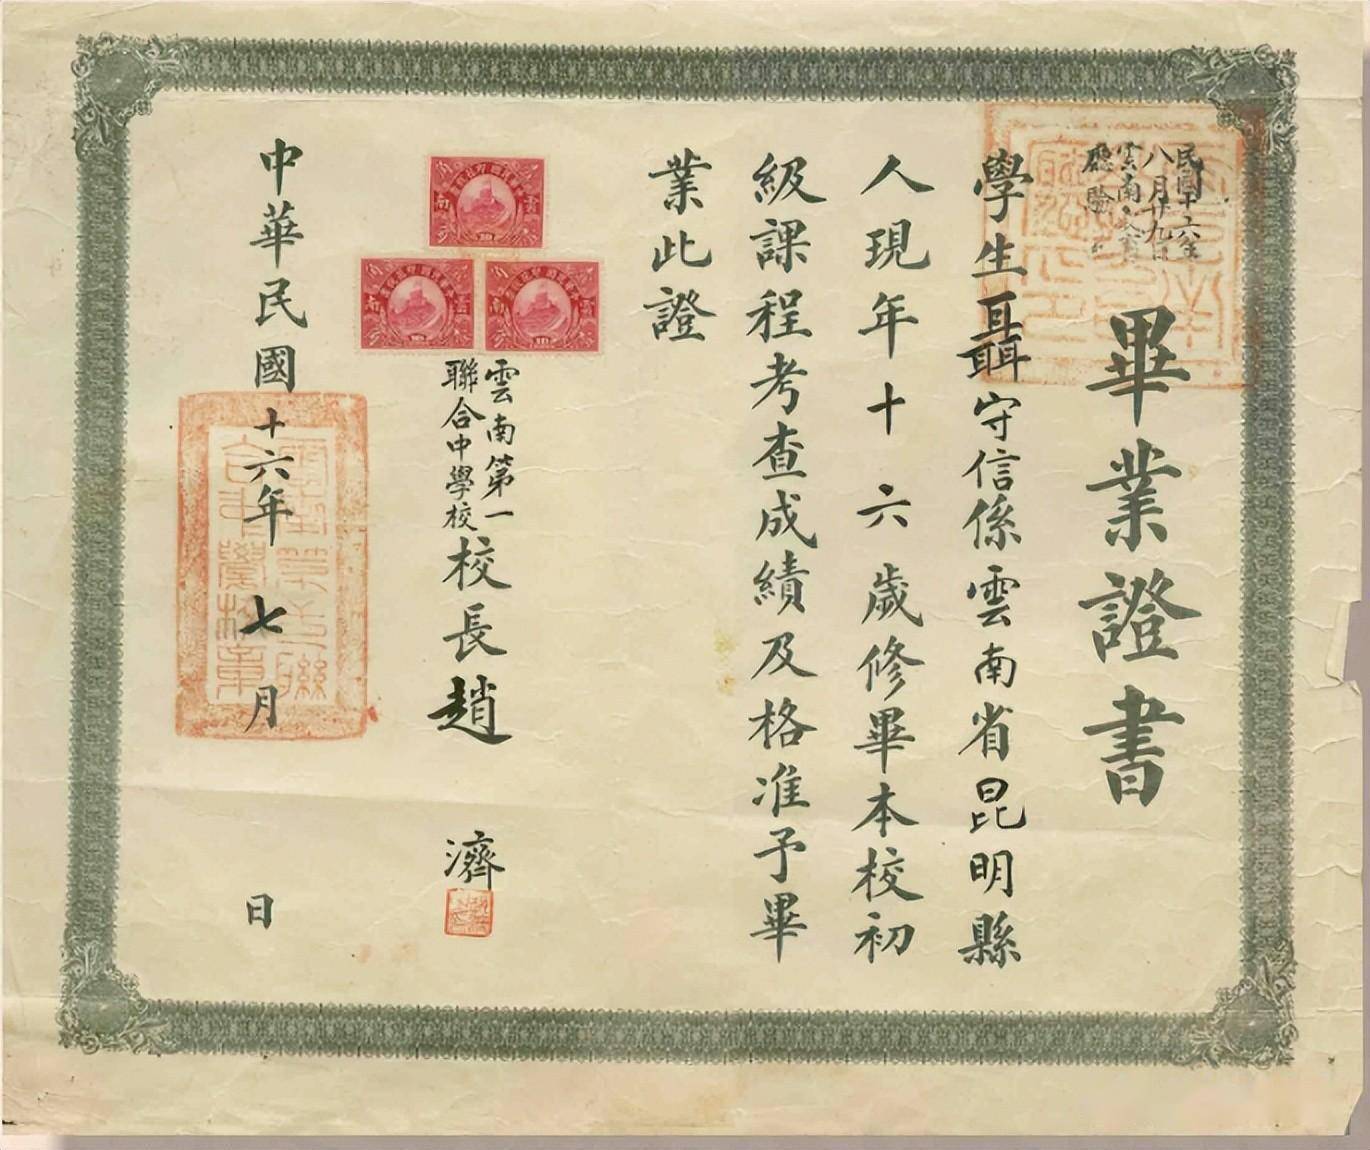 畢業證書
學生聶守信係雲南省昆明縣
人現年十六歲修畢本校初
級課程考查成績及格准予畢
業此證
雲南第一
聯合中學校
校長趙濟
中華民國十六年七月 日
民國十六年
八月廿九日